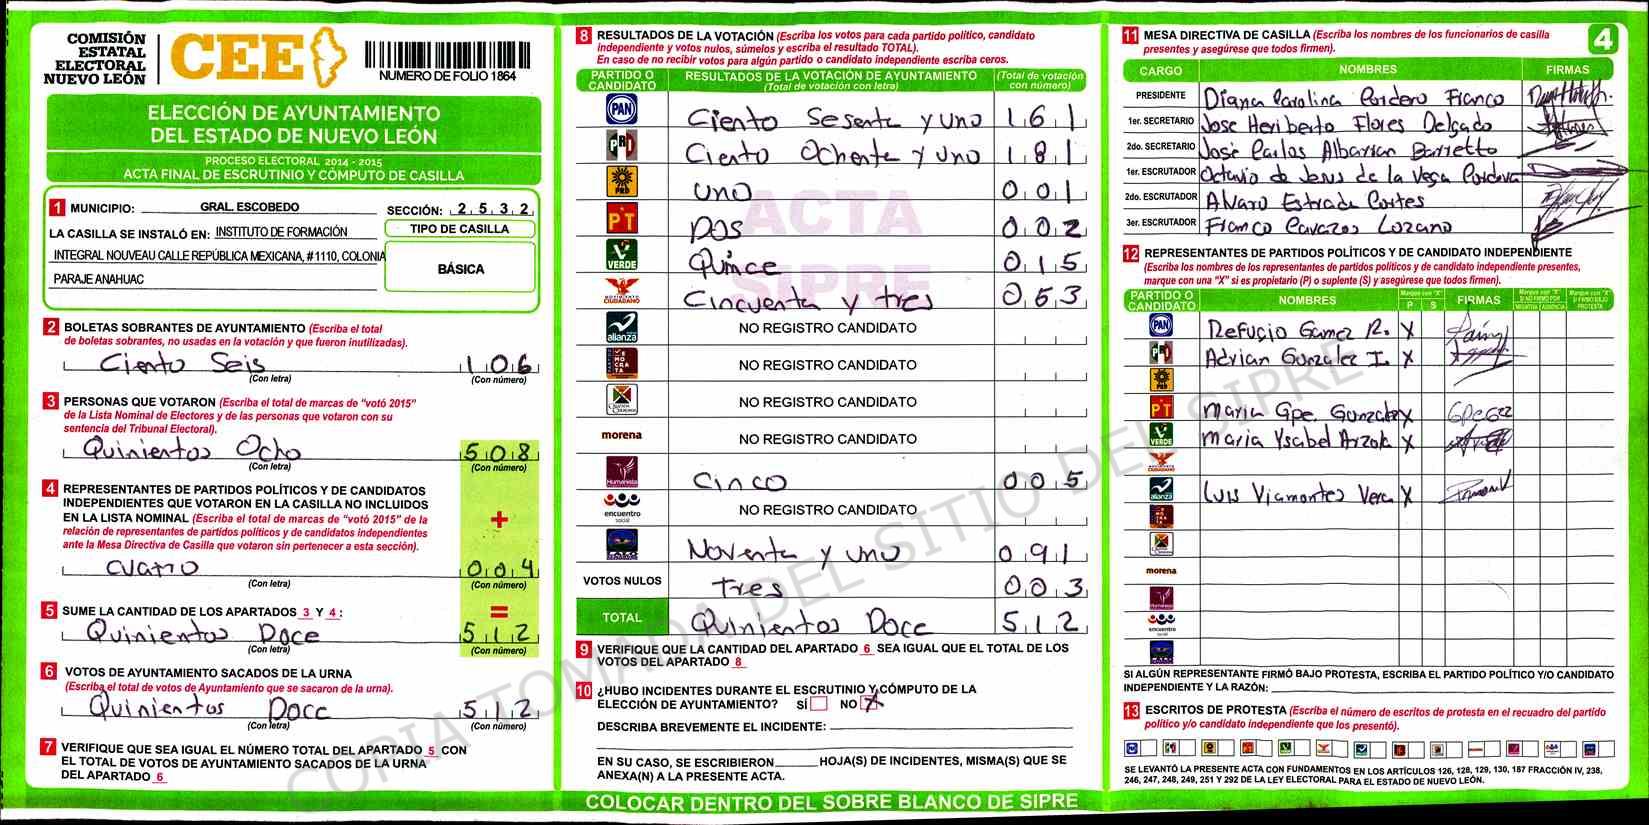 COMISIÓN
ESTATAL
ELECTORAL
NUEVO LEÓN
CEE
NUMERO DE FOLIO 1864
ELECCIÓN DE AYUNTAMIENTO
DEL ESTADO DE NUEVO LEÓN
PROCESO ELECTORAL 2014 - 2015
ACTA FINAL DE ESCRUTINIO Y CÓMPUTO DE CASILLA
1 MUNICIPIO: GRAL. ESCOBEDO SECCIÓN: 2 5 3 2
LA CASILLA SE INSTALÓ EN: INSTITUTO DE FORMACIÓN
INTEGRAL NOUVEAU CALLE REPÚBLICA MEXICANA, #1110, COLONIA
PARAJE ANAHUAC
TIPO DE CASILLA
BÁSICA
2 BOLETAS SOBRANTES DE AYUNTAMIENTO (Escriba el total
de boletas sobrantes, no usadas en la votación y que fueron inutilizadas).
Ciento Seis 1 0 6
(Con letra) (Con número)
3 PERSONAS QUE VOTARON (Escriba el total de marcas de “votó 2015”
de la Lista Nominal de Electores y de las personas que votaron con su
sentencia del Tribunal Electoral).
Quinientos Ocho 5 0 8
(Con letra) (Con número)
4 REPRESENTANTES DE PARTIDOS POLÍTICOS Y DE CANDIDATOS
INDEPENDIENTES QUE VOTARON EN LA CASILLA NO INCLUIDOS
EN LA LISTA NOMINAL (Escriba el total de marcas de “votó 2015” de la
relación de representantes de partidos políticos y de candidatos independientes
ante la Mesa Directiva de Casilla que votaron sin pertenecer a esta sección).
+
cuatro 0 0 4
(Con letra) (Con número)
5 SUME LA CANTIDAD DE LOS APARTADOS 3 Y 4 : =
Quinientos Doce 5 1 2
(Con letra) (Con número)
6 VOTOS DE AYUNTAMIENTO SACADOS DE LA URNA
(Escriba el total de votos de Ayuntamiento que se sacaron de la urna).
Quinientos Doce 5 1 2
(Con letra) (Con número)
7 VERIFIQUE QUE SEA IGUAL EL NÚMERO TOTAL DEL APARTADO 5 CON
EL TOTAL DE VOTOS DE AYUNTAMIENTO SACADOS DE LA URNA
DEL APARTADO 6
8 RESULTADOS DE LA VOTACIÓN (Escriba los votos para cada partido político, candidato
independiente y votos nulos, súmelos y escriba el resultado TOTAL).
En caso de no recibir votos para algún partido o candidato independiente escriba ceros.
PARTIDO O CANDIDATO RESULTADOS DE LA VOTACIÓN DE AYUNTAMIENTO (Total de votación con letra) (Total de votación con número)
PAN Ciento Sesenta y uno 1 6 1
PRI Ciento Ochenta y uno 1 8 1
PRD uno 0 0 1
PT DOS 0 0 2
VERDE Quince 0 1 5
MOVIMIENTO CIUDADANO Cincuenta y tres 0 5 3
alianza NO REGISTRO CANDIDATO
DEMOCRATA NO REGISTRO CANDIDATO
NO REGISTRO CANDIDATO
morena NO REGISTRO CANDIDATO
Humanista Cinco 0 0 5
encuentro social NO REGISTRO CANDIDATO
Noventa y uno 0 9 1
VOTOS NULOS tres 0 0 3
TOTAL Quinientos Doce 5 1 2
ACTA
SIPRE
9 VERIFIQUE QUE LA CANTIDAD DEL APARTADO 6 SEA IGUAL QUE EL TOTAL DE LOS
VOTOS DEL APARTADO 8
10 ¿HUBO INCIDENTES DURANTE EL ESCRUTINIO Y CÓMPUTO DE LA
ELECCIÓN DE AYUNTAMIENTO? SÍ NO X
DESCRIBA BREVEMENTE EL INCIDENTE:
EN SU CASO, SE ESCRIBIERON HOJA(S) DE INCIDENTES, MISMA(S) QUE SE
ANEXA(N) A LA PRESENTE ACTA.
COLOCAR DENTRO DEL SOBRE BLANCO DE SIPRE
COPIA TOMADA DEL SITIO DEL SIPRE
11 MESA DIRECTIVA DE CASILLA (Escriba los nombres de los funcionarios de casilla
presentes y asegúrese que todos firmen).
4
CARGO NOMBRES FIRMAS
PRESIDENTE Diana Carolina Cordero Franco
1er. SECRETARIO Jose Heriberto Flores Delgado
2do. SECRETARIO José Carlos Albarran Barretto
1er. ESCRUTADOR Octavio de Jesus de la Vega Cordova
2do. ESCRUTADOR Alvaro Estrada Cortes
3er. ESCRUTADOR Franco Cavazos Lozano
12 REPRESENTANTES DE PARTIDOS POLÍTICOS Y DE CANDIDATO INDEPENDIENTE
(Escriba los nombres de los representantes de partidos políticos y de candidato independiente presentes,
marque con una “X” si es propietario (P) o suplente (S) y asegúrese que todos firmen).
PARTIDO O CANDIDATO NOMBRES Marque con “X” P S FIRMAS Marque con “X” SI NO FIRMÓ POR NEGATIVA AUSENCIA Marque con “X” SI FIRMÓ BAJO PROTESTA
PAN Refugio Gamez R. X
PRI Adrian Gonzalez I. X
PRD
PT Maria Gpe. Gonzalez X Gpe Gzz
VERDE Maria Ysabel Arzola X
alianza Luis Viamontes Vera X
morena
Humanista
encuentro social
SI ALGÚN REPRESENTANTE FIRMÓ BAJO PROTESTA, ESCRIBA EL PARTIDO POLÍTICO Y/O CANDIDATO
INDEPENDIENTE Y LA RAZÓN:
13 ESCRITOS DE PROTESTA (Escriba el número de escritos de protesta en el recuadro del partido
político y/o candidato independiente que los presentó).
SE LEVANTÓ LA PRESENTE ACTA CON FUNDAMENTOS EN LOS ARTÍCULOS 126, 128, 129, 130, 187 FRACCIÓN IV, 238,
246, 247, 248, 249, 251 Y 292 DE LA LEY ELECTORAL PARA EL ESTADO DE NUEVO LEÓN.